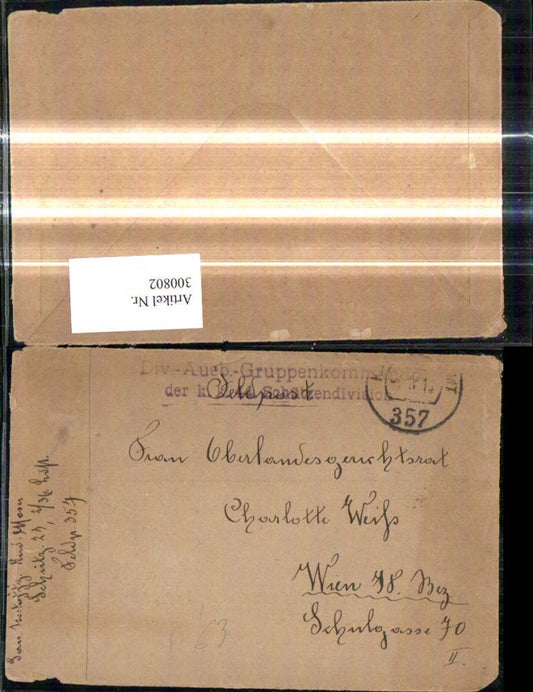 Artikel Nr.
300802
Div.-Ausb.-Gruppenkomm
der k. k. Schützendivision
Feldpost
357
Frau Oberlandesgerichtsrat
Charlotte Weihs
Wien 18. Bez
Schulgasse 70
II.
Feldp. 357
63